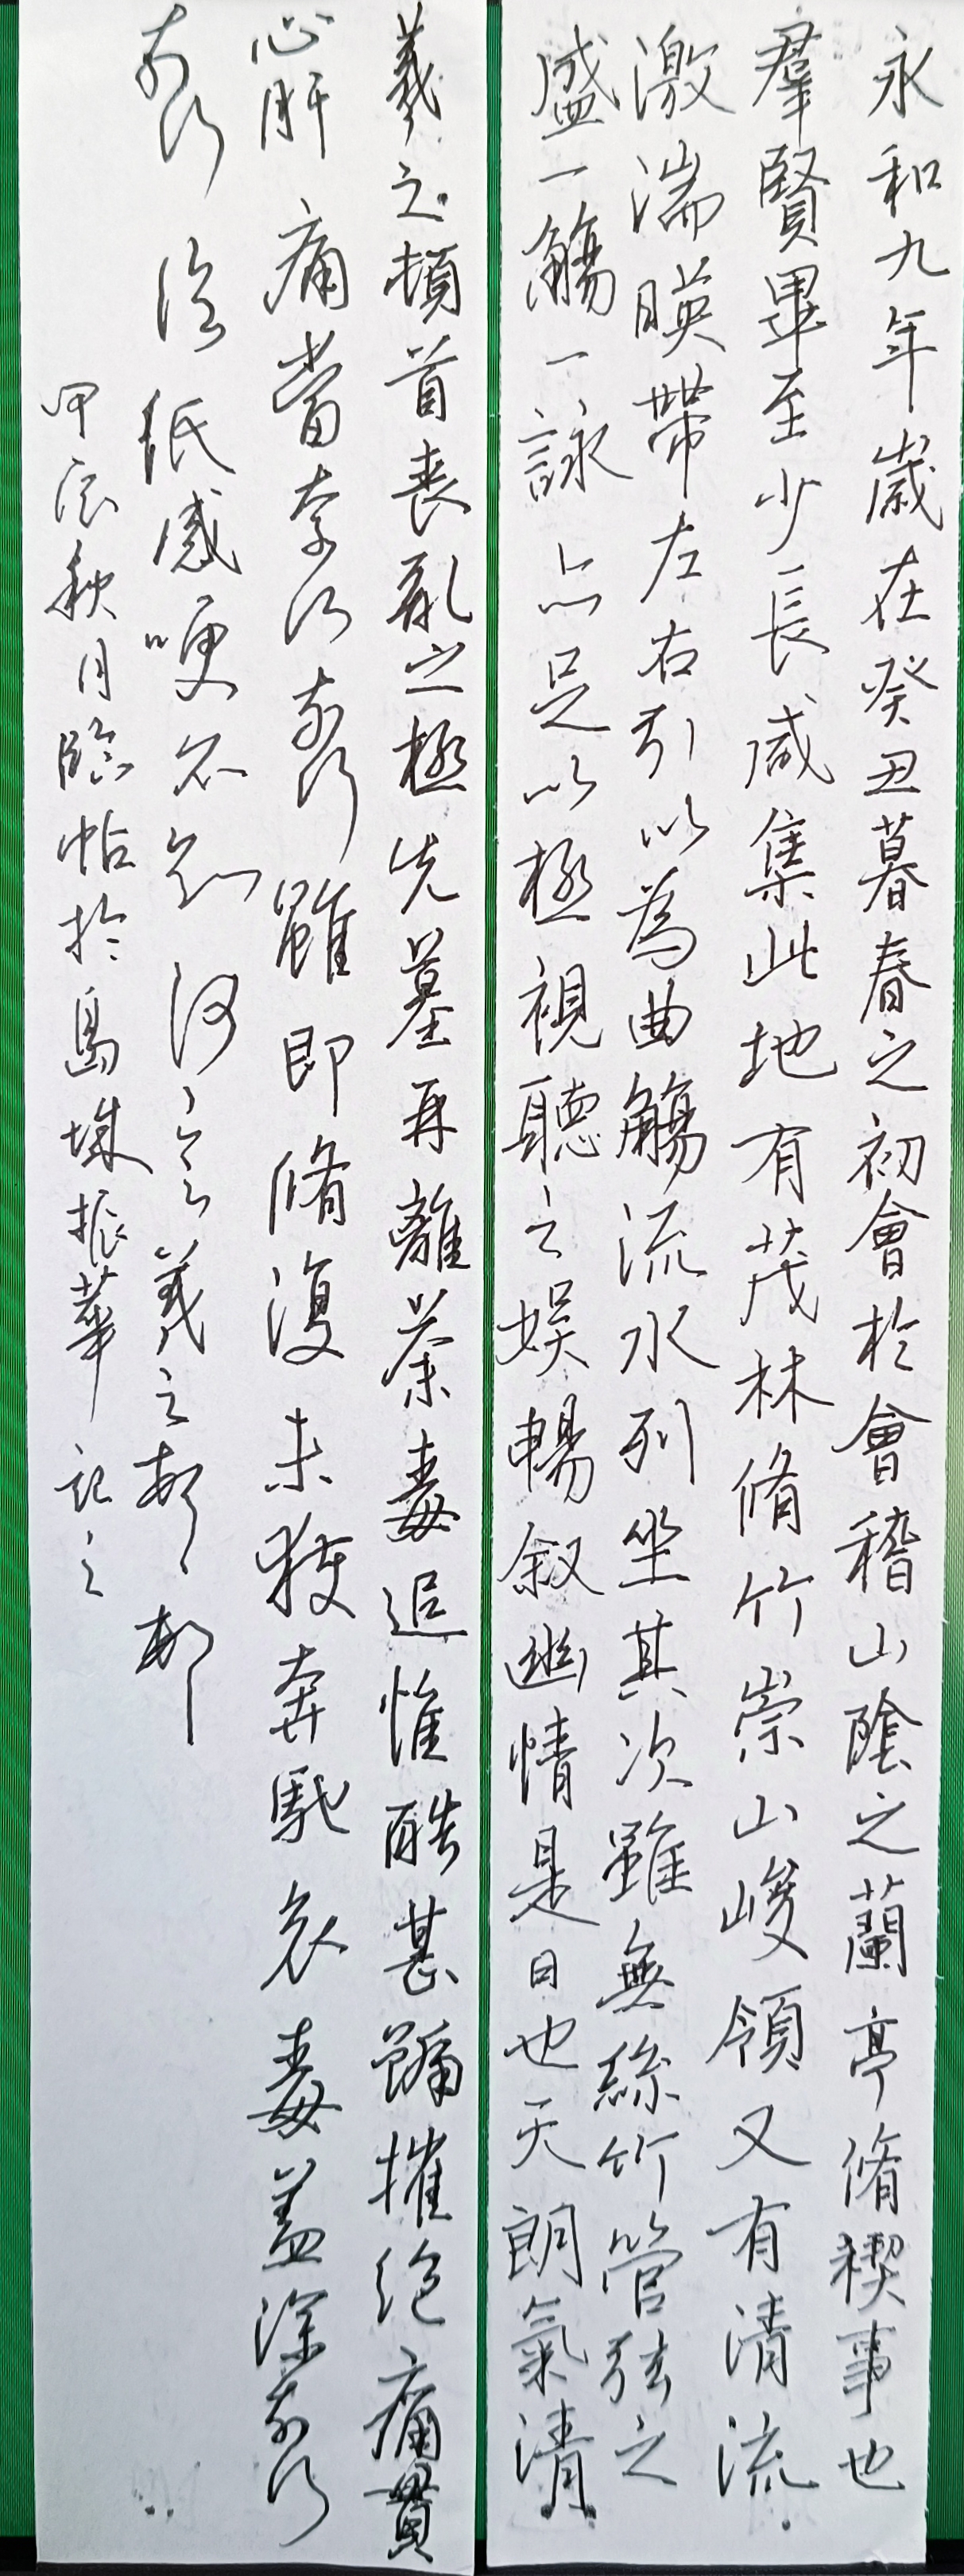 永和九年歲在癸丑暮春之初會於會稽山陰之蘭亭脩禊事也
羣賢畢至少長咸集此地有茂林脩竹崇山峻領又有清流
激湍暎帶左右引以為曲觴流水列坐其次雖無絲竹管弦之
盛一觴一詠亦足以極視聽之娛暢叙幽情是日也天朗氣清
羲之頓首喪亂之極先墓再離荼毒追惟酷甚號摧絕痛貫
心肝痛當奈何奈何雖即脩復未獲奔馳哀毒益深奈何
奈何臨紙感哽不知何言羲之頓首頓首
甲辰秋月臨帖於島城振華記之